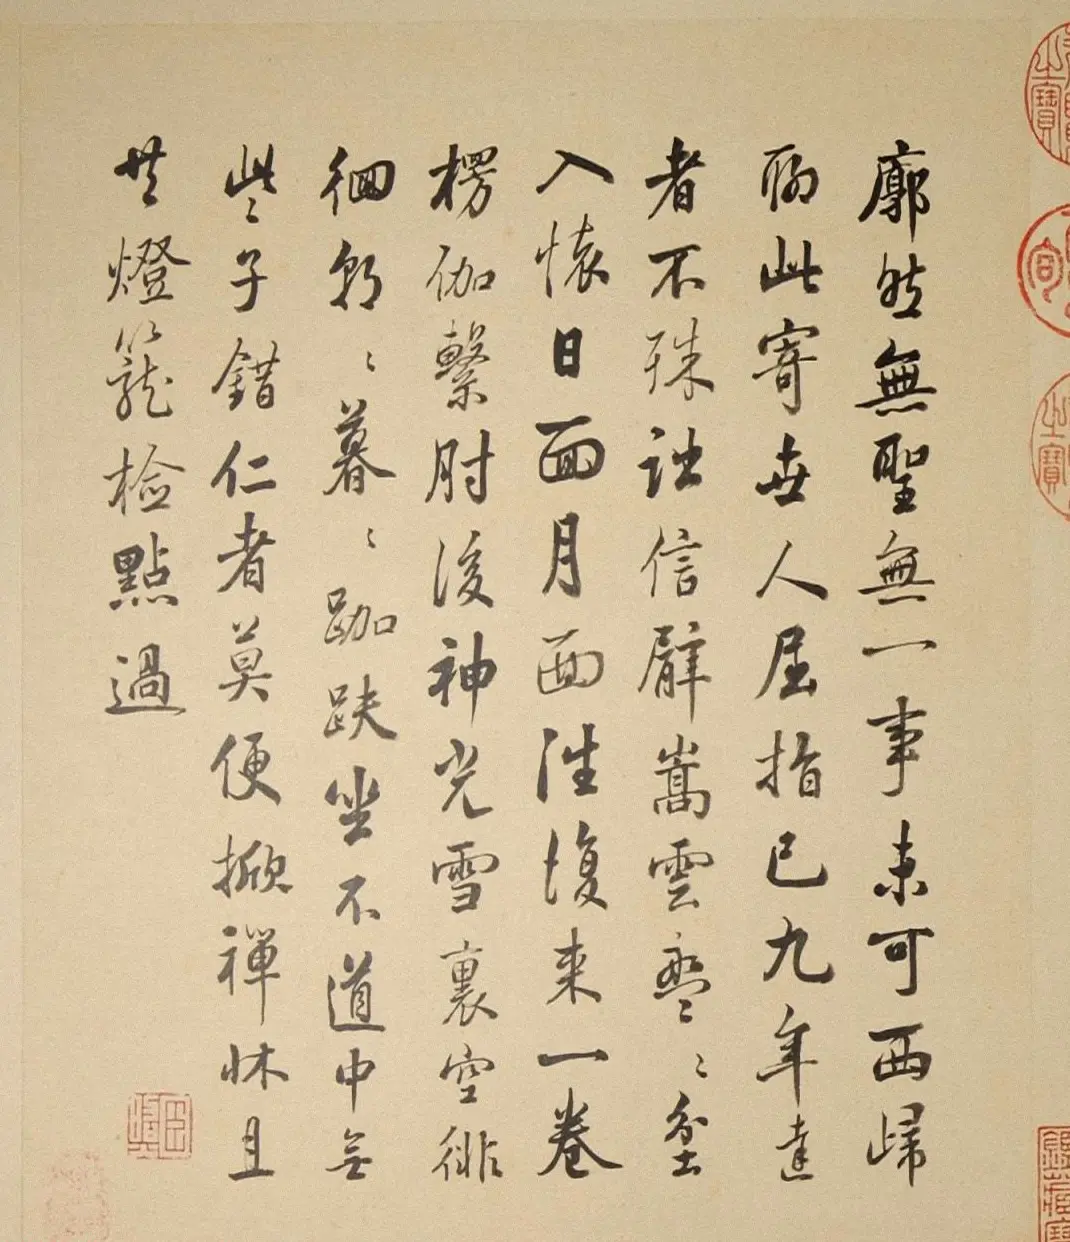 廓然無聖無一事未可西歸
聊此寄世人屈指已九年達
者不殊詘信臂嵩雲〻坌
入懷日面月面往復來一卷
楞伽繫肘後神光雪裏空徘
徊朝〻暮〻跏趺坐不道中無
些子錯仁者莫便掀禪牀且
共燈籠檢點過